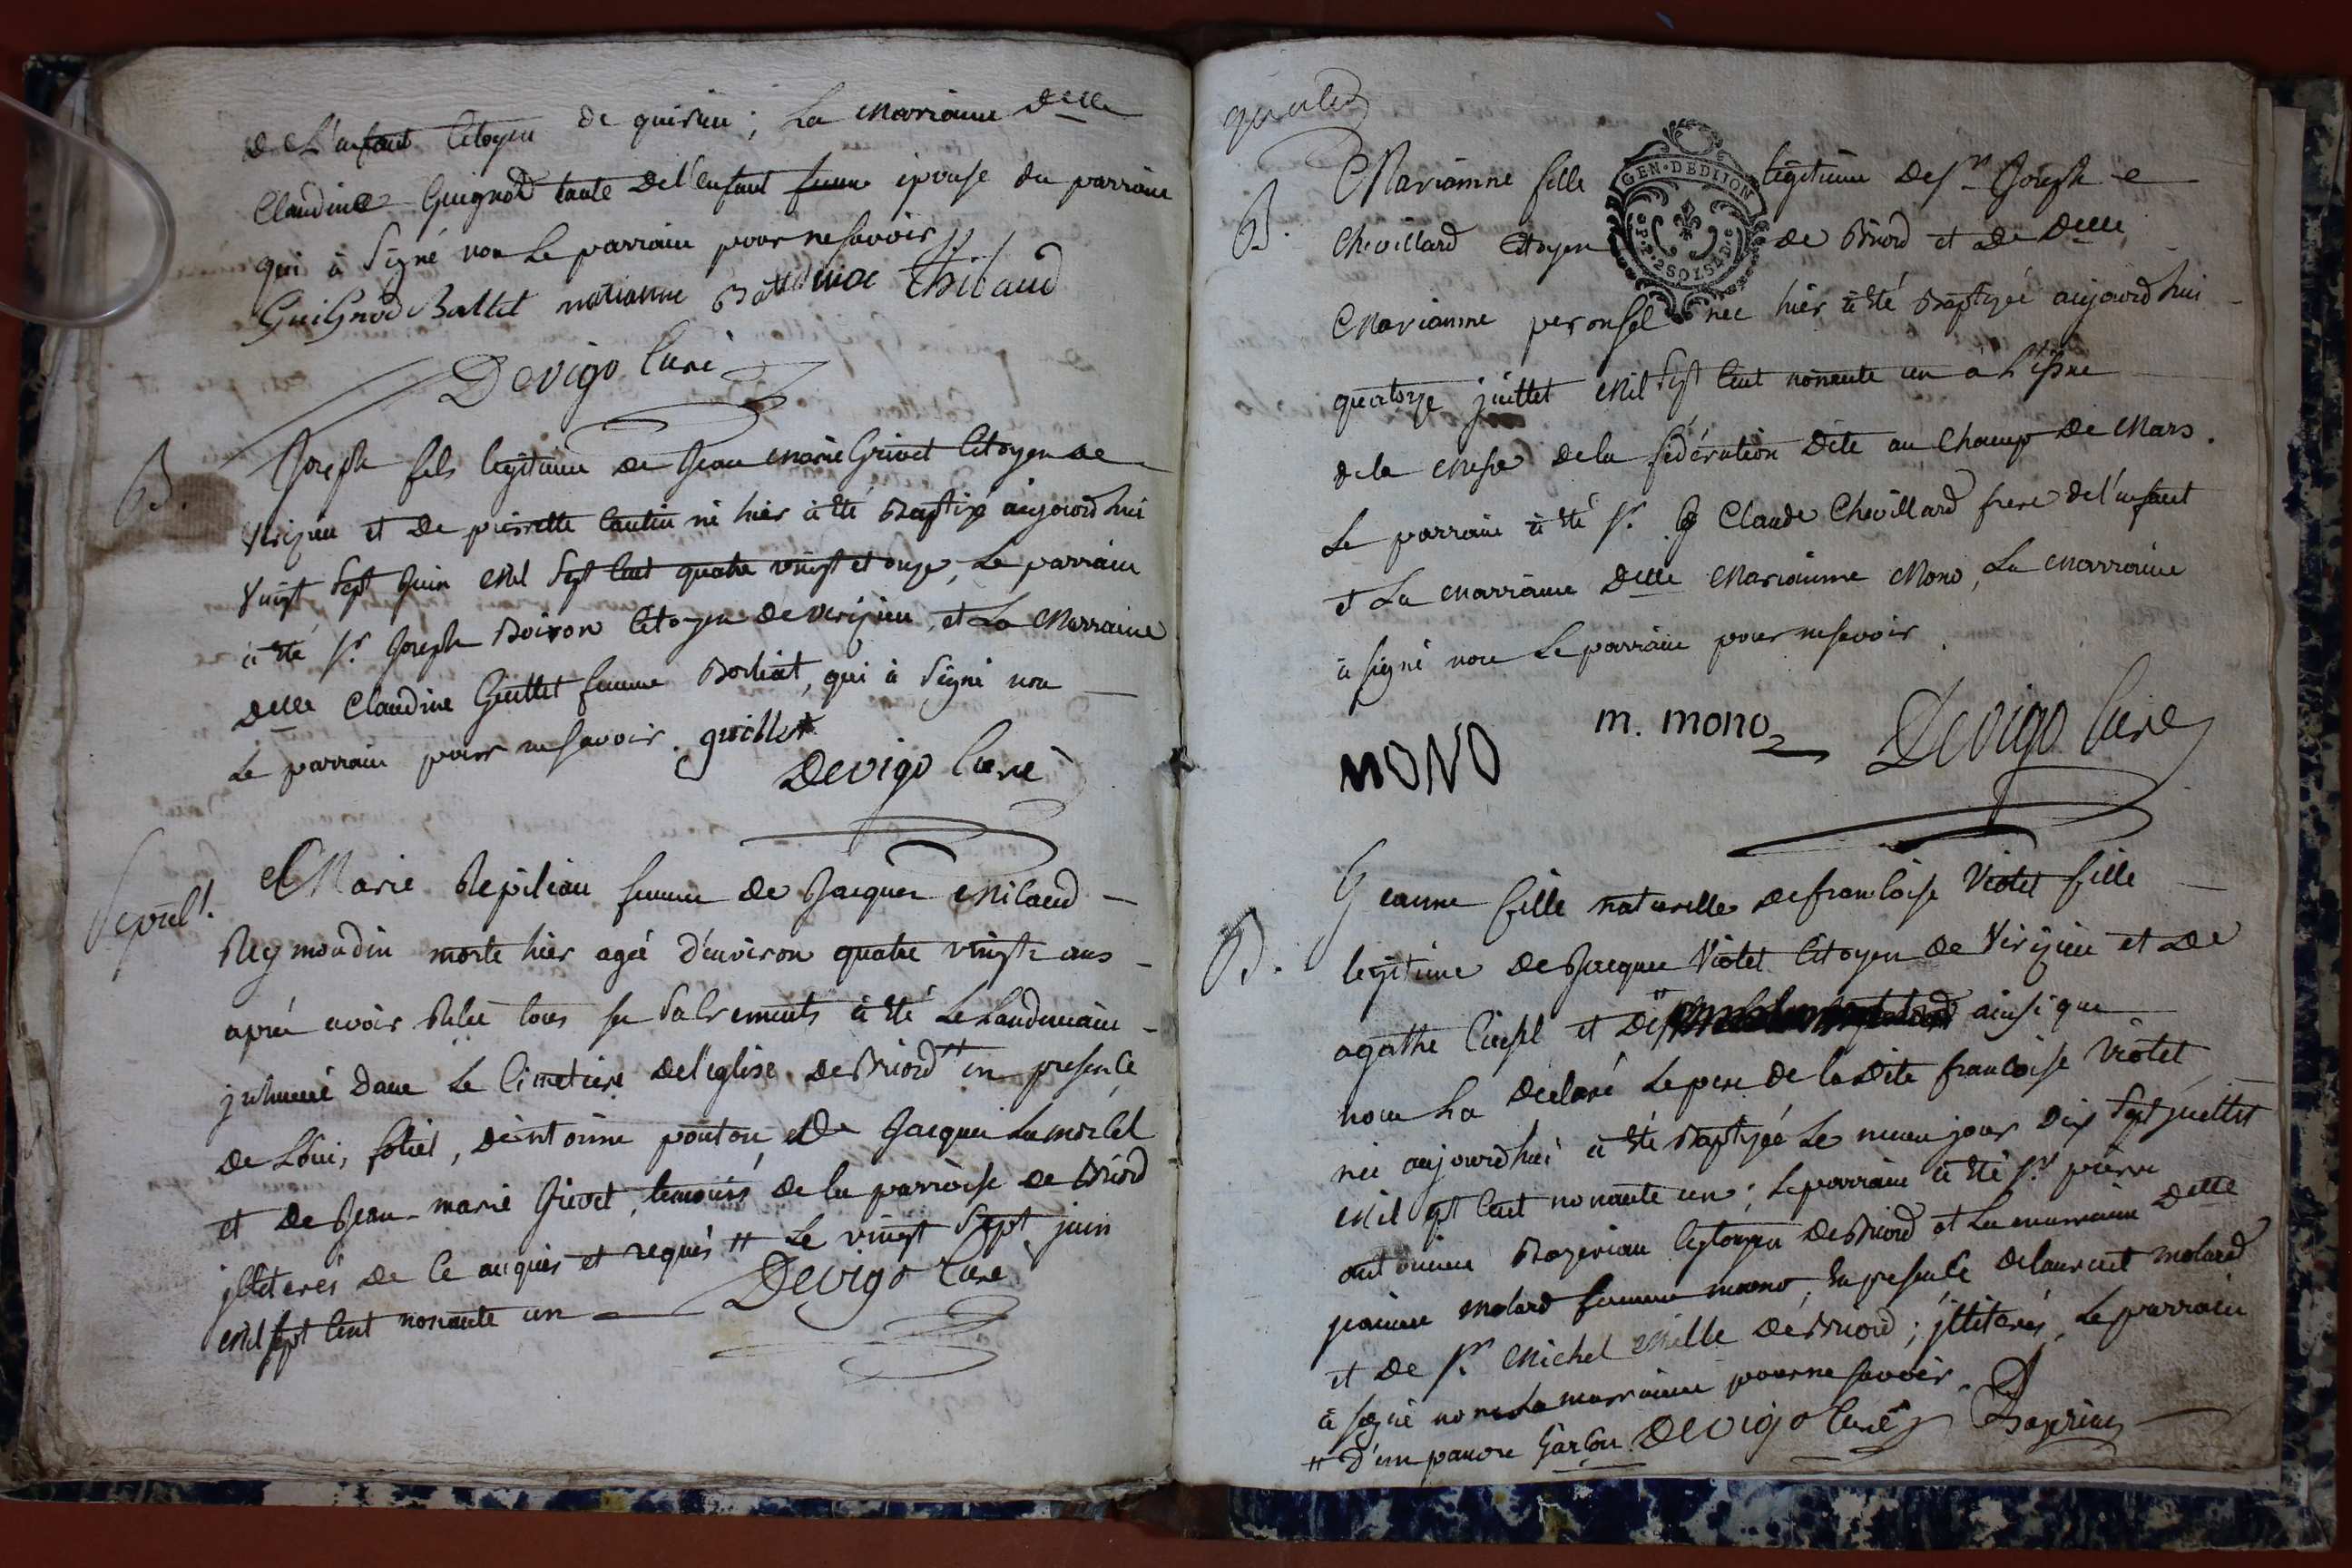 de L'enfant Citoyen de quirieu; La Marraine Delle
Claudine Guignod tante De l'enfant femme epouse du parrain
qui à Signé non Le parrain pour ne savoir //
GuiGnod Battet marianne Thibaud
Devigo Curé
B.
Joseph fils legitime de Jean marie Grivet Citoyen de
Verizieu et De pierrette né hier à été Baptizé aujourd'hui
Vingt Sept Juin Mil Sept Cent quatre vingt et onze, Le parrain
à été Sr. Joseph Boiron Citoyen De verizieu, et La Marraine
Delle Claudine Guillet femme qui à Signé non
Le parrain pour ne savoir. guillet
Devigo Curé
Sepult.
Marie femme de Jacques Milaud
Reymondin morte hier agée d'environ quatre vingt ans
aprés avoir tous ses Sacrements à été Le Landemain
jnhumé dans Le Cimetiere De l'eglise De Briord # en presence
De Loüis, Dantoine ponton, et De Jacques
et De Jean-marie Grivet, temoins De la parroisse De Briord
jlliterés De Ce anquis et requis # Le vingt Sept juin
Mil Sept Cent nonante un Devigo Curé
B.
Marianne fille legitime De Sr Joseph
GEN. DE DIJON
Chevillard Citoyen de Briord et De Delle
2 SOLS 4 D
Marianne née hier à été Baptizée aujourd'hui
quatorze juillet Mil Sept Cent nonante un à L'issue
de la Messe De la fédération Dite au Champ De Mars.
Le parrain à été Sr. Claude Chevillard frere de l'enfant
et La Marraine Delle Marianne Mono, La Marraine
à signé non Le parrain pour ne savoir
MONO m. mono Devigo Curé
B.
Jeanne fille naturelle de francoise Violet fille
legitime De Jacques Violet Citoyen de Virizieu et De
agathe et De # ainsi que
nous La declaré Le pere de la Dite francoise Violet
née aujourd'hui à été Baptizée Le meme jour Dix Sept juillet
Mil Sept Cent nonante un; Le parrain à été Sr pierre
antoine Citoyen De Briord et La marraine Delle
jeanne Molard femme mono, En presence De laurent molard
et De Sr. Michel De Briord; jlliterés, Le parrain
à signé non La marraine pour ne savoir.
# D'un pauvre Garcon Devigo Curé